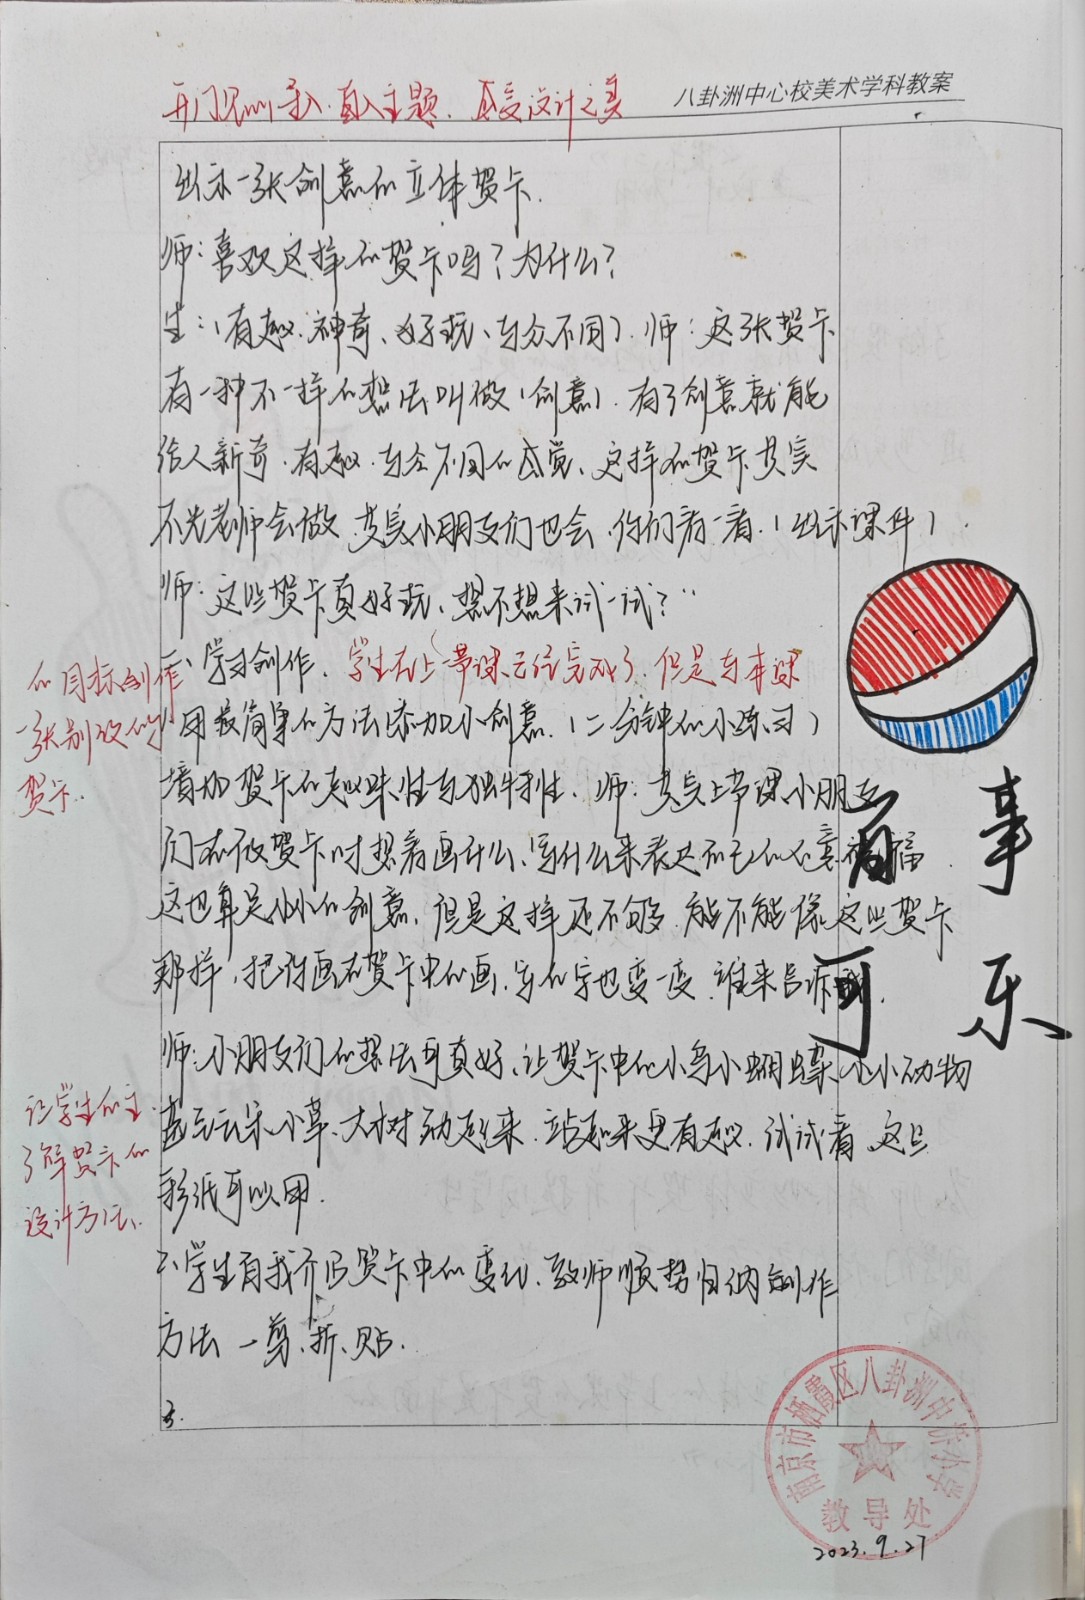 八卦洲中心校美术学科教案
开门见山导入.直入主题.感受设计之美
出示一张创意的立体贺卡.
师:喜欢这样的贺卡吗?为什么?
生:(有趣.神奇、好玩、与众不同).师:这张贺卡
有一种不一样的想法叫做(创意).有了创意就能
给人新奇.有趣.与众不同的感觉、这样的贺卡其实
不光老师会做.其实小朋友们也会.你们看一看.(出示课件).
师:这些贺卡真好玩、想不想来试一试?
二、学习创作.学生在上一节课已经完成了.但是与本课
的目标创作
一张别致的
贺卡.
1.用最简单的方法添加小创意.(二分钟的小练习)
增加贺卡的趣味性与独特性.师:其实上节课小朋友
们在做贺卡时想着画什么、写什么来表达自己的心意和祝福
这也算是小小的创意.但是这样还不够.能不能像这些贺卡
那样,把你画在贺卡中的画、写的字也变一变.谁来告诉我.
师:小朋友们的想法可真好、让贺卡中的小鸟小蝴蝶、小小动物
甚至云朵小草、大树动起来.站起来更有趣.试试看.这些
彩纸可以用.
让学生的主
了解贺卡的
设计方法.
2.学生自我介绍贺卡中的变化、教师顺势归纳创作
方法一剪、折、贴.
3.
百事
可乐
南京市栖霞区八卦洲中桥小学
教导处
2023.9.27